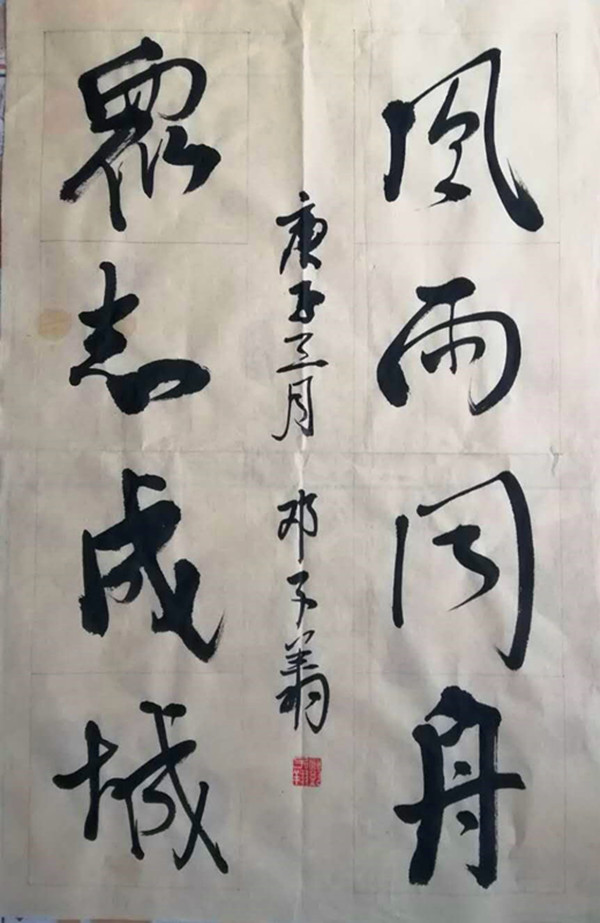 風雨同舟
眾志成城
庚子三月 邓子